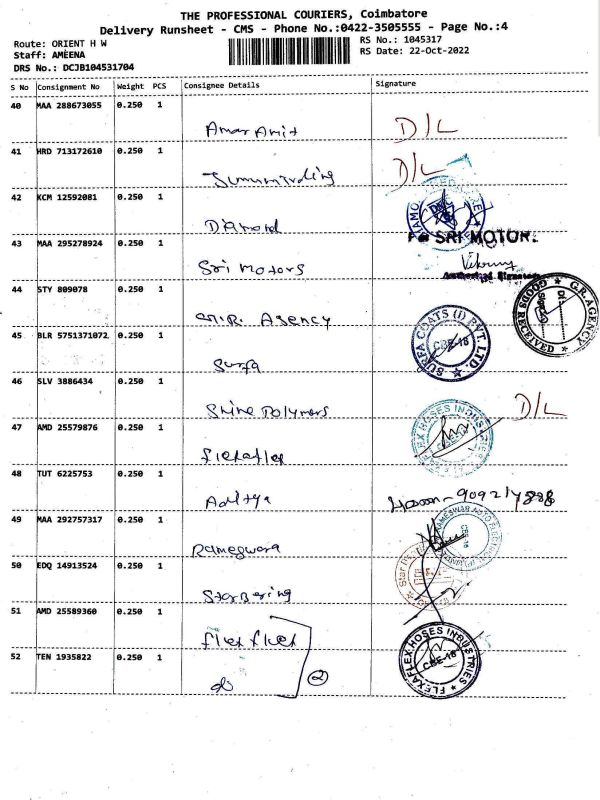 THE PROFESSIONAL COURIERS, Coimbatore
Delivery Runsheet - CMS - Phone No.:0422-3505555 - Page No.:4
Route: ORIENT H W
RS No.: 1045317
Staff: AMEENA
RS Date: 22-Oct-2022
DRS No.: DCJB104531704
S No Consignment No Weight PCS Consignee Details Signature
40 MAA 288673055 0.250 1
Amar Amit D/L
41 HRD 713172610 0.250 1
D/L
42 KCM 12592081 0.250 1
Diamond
43 MAA 295278924 0.250 1
SRI MOTOR.
Sri Motors
Authorised Signatory
44 STY 809078 0.250 1
G.R. Agency
G.R. AGENCY GOODS RECEIVED
45 BLR 5751371072 0.250 1
SURFA COATS (I) PVT. LTD. CBE-18
Surfa
46 SLV 3886434 0.250 1
Shine Polymers D/L
47 AMD 25579876 0.250 1
HOSES INDUSTRIES
48 TUT 6225753 0.250 1
Aditya
49 MAA 292757317 0.250 1
Rameswara
50 EDQ 14913524 0.250 1
Star Bering
51 AMD 25589360 0.250 1
FLEXAFLEX HOSES INDUSTRIES CBE-18
52 TEN 1935822 0.250 1
do 2